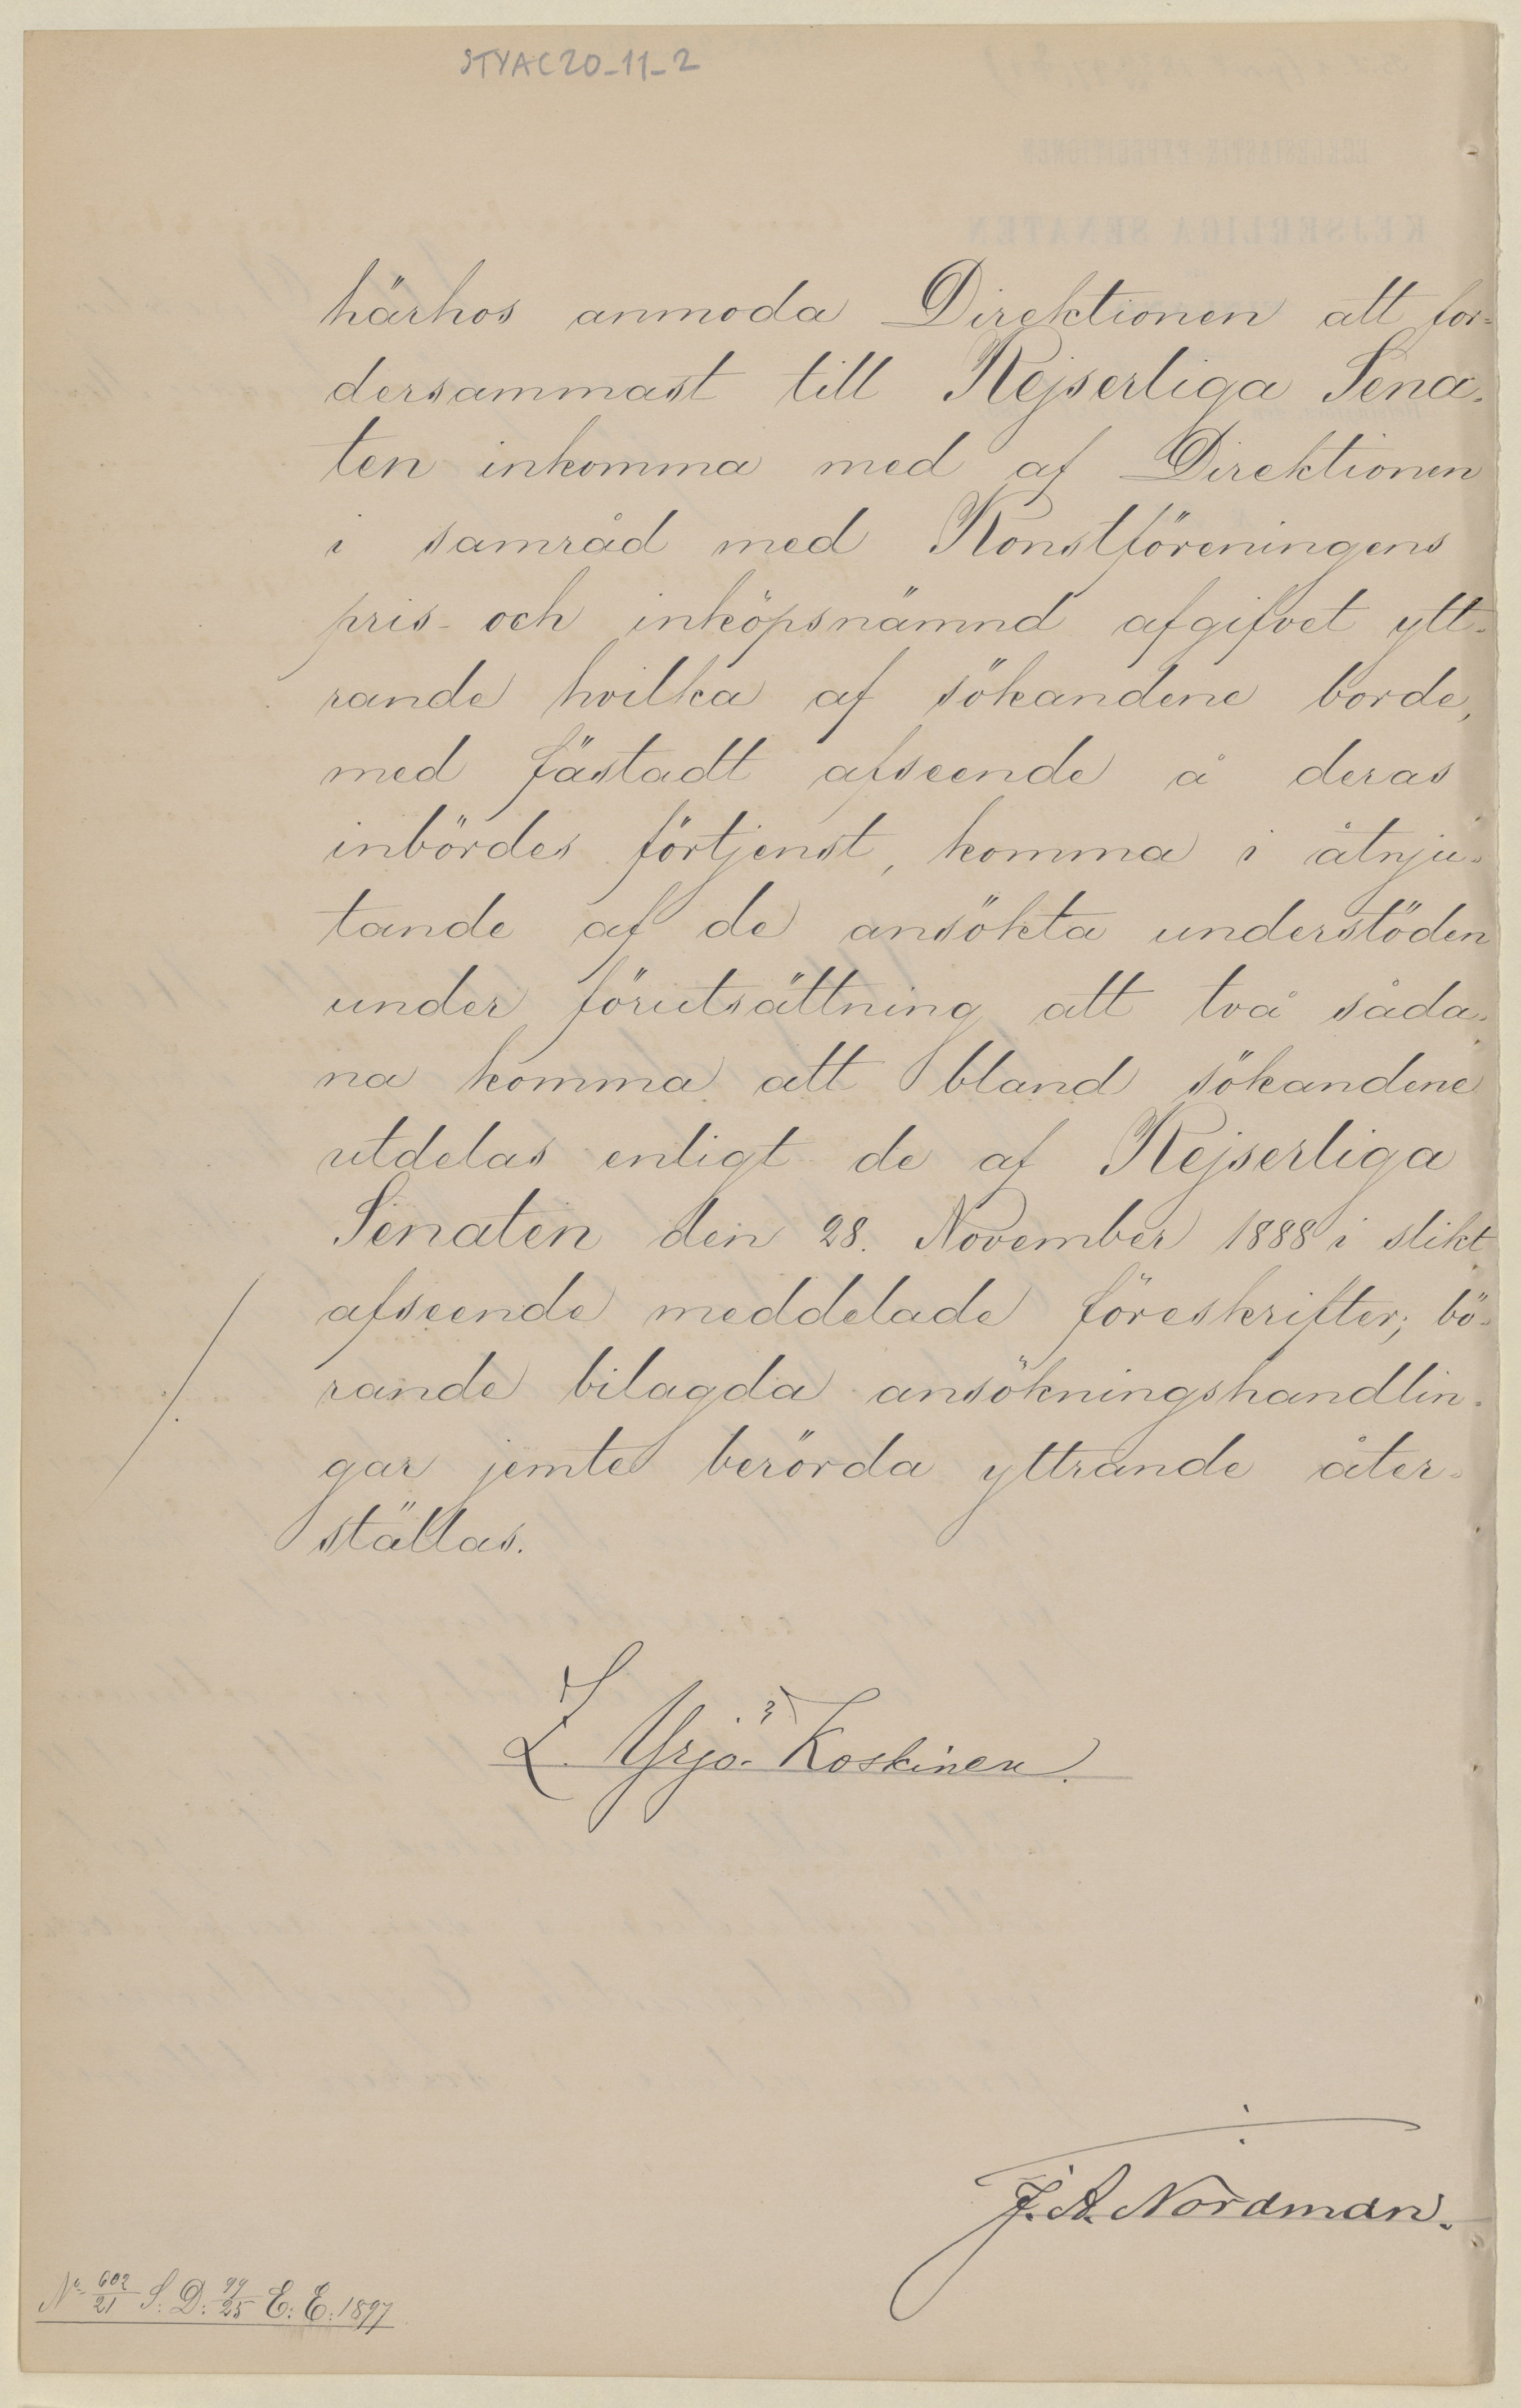 STYAC20_11_2
härhos anmoda Direktionen att for-
dersammast till Kejserliga Sena-
ten inkomma med af Direktionen
i samråd med Konstföreningens
pris- och inköpsnämnd afgifvet ytt-
rande hvilka af sökandene borde,
med fästadt afseende å deras
inbördes förtjenst, komma i åtnju-
tande af de ansökta understöden
under förutsättning att två såda-
na komma att bland sökandene
utdelas enligt de af Kejserliga
Senaten den 28. November 1888 i slikt
afseende meddelade föreskrifter; bö-
rande bilagda ansökningshandlin-
gar jemte berörda yttrande åter-
ställas.
Z. Yrjö-Koskinen.
J. A. Nordman.
No 602/21 S: D: 99/25 E: E: 1897